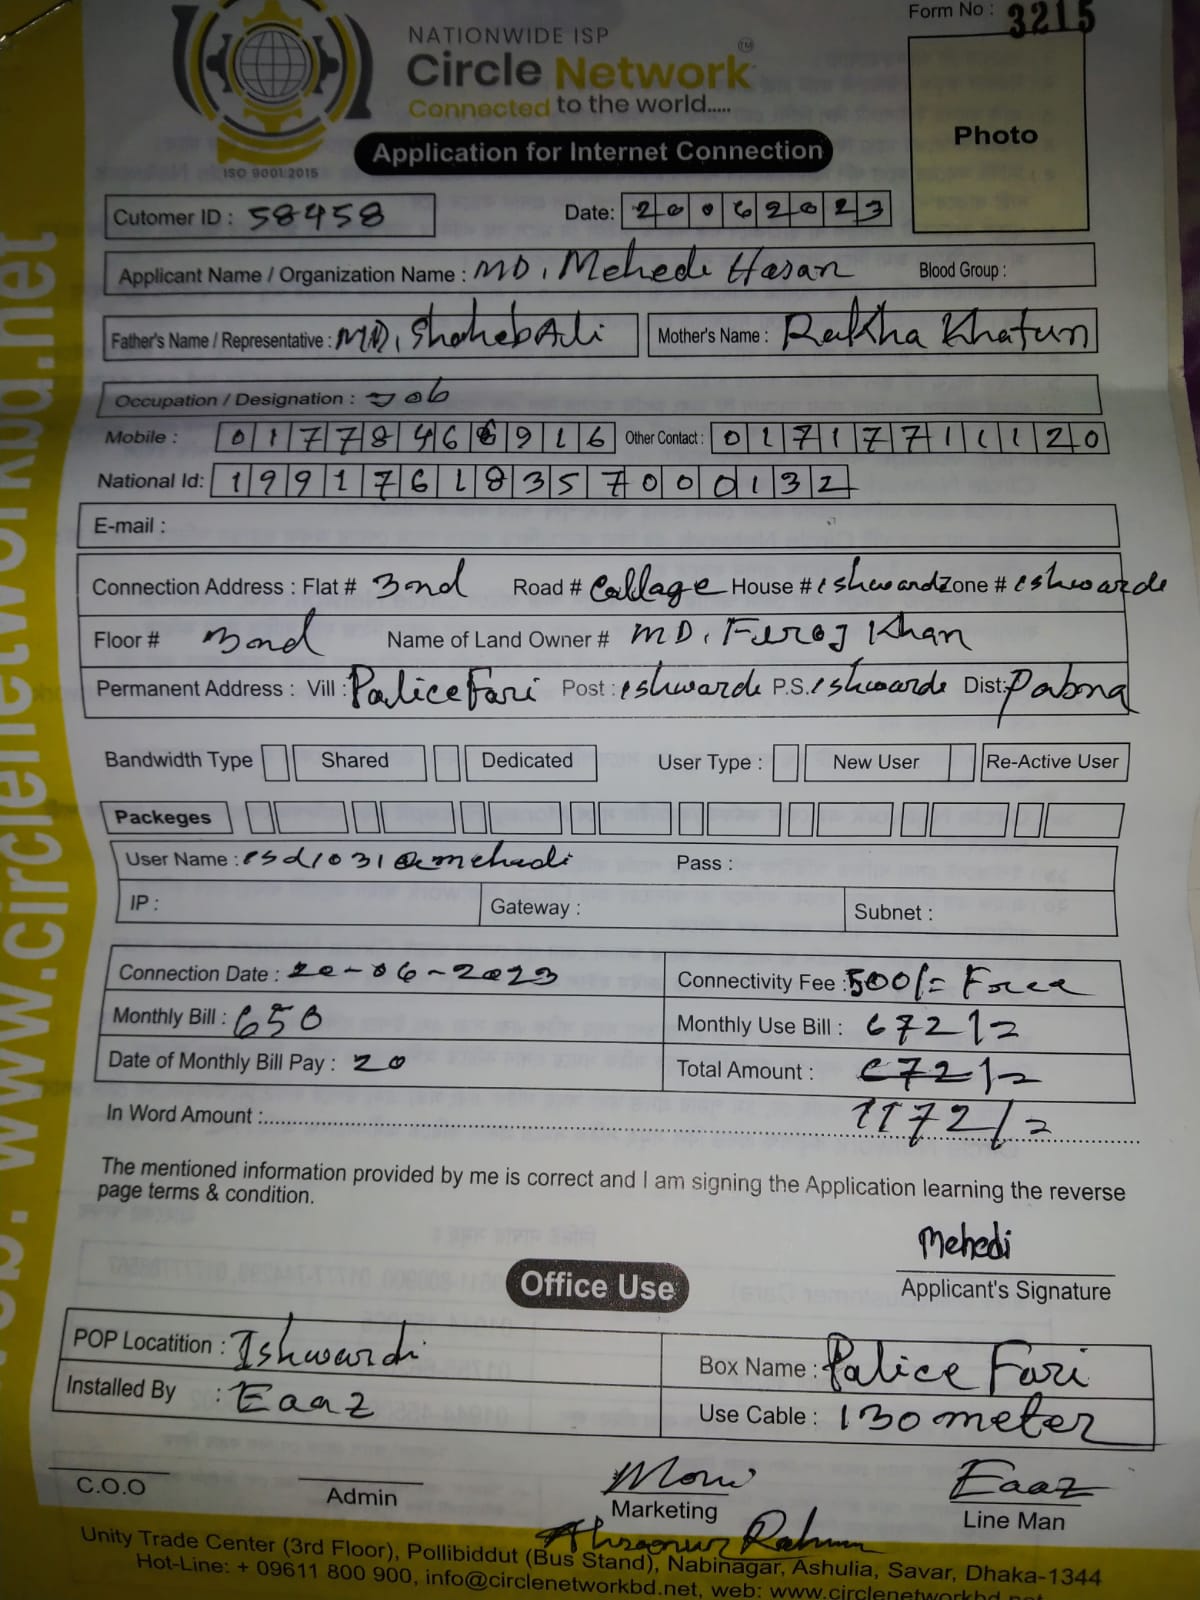 Form No : 3215
NATIONWIDE ISP
Circle Network TM
Connected to the world.....
ISO 9001:2015
Photo
Application for Internet Connection
Cutomer ID : 58458 Date: 20062023
Applicant Name / Organization Name : MD. Mehedi Hasan Blood Group :
Father's Name / Representative : MD. Shaheb Ali Mother's Name : Rekha Khatun
Occupation / Designation : Job
Mobile : 01778466916 Other Contact : 01717711120
National Id: 19917618357000132
E-mail :
Connection Address : Flat # 3ond Road # Callage House # eshward Zone # eshwarde
Floor # 3ond Name of Land Owner # MD. Feroj Khan
Permanent Address : Vill : Palice Fari Post : eshwarde P.S. eshwarde Dist: Pabna
Bandwidth Type Shared Dedicated User Type : New User Re-Active User
Packeges
User Name : esd1031@mehadi Pass :
IP : Gateway : Subnet :
Connection Date : 20-06-2023 Connectivity Fee : 500/= Free
Monthly Bill : 650 Monthly Use Bill : 672/=
Date of Monthly Bill Pay : 20 Total Amount : 672/=
In Word Amount :.......... 1172/=
The mentioned information provided by me is correct and I am signing the Application learning the reverse
page terms & condition.
Mehedi
Applicant's Signature
Office Use
POP Locatition : Ishwardi Box Name : Palice Fari
Installed By : Eaaz Use Cable : 130 meter
Moni Eaaz
C.O.O Admin Marketing Line Man
Unity Trade Center (3rd Floor), Pollibiddut (Bus Stand), Nabinagar, Ashulia, Savar, Dhaka-1344
Hot-Line: + 09611 800 900, info@circlenetworkbd.net, web: www.circlenetworkbd.net
www.circlenetworkbd.net